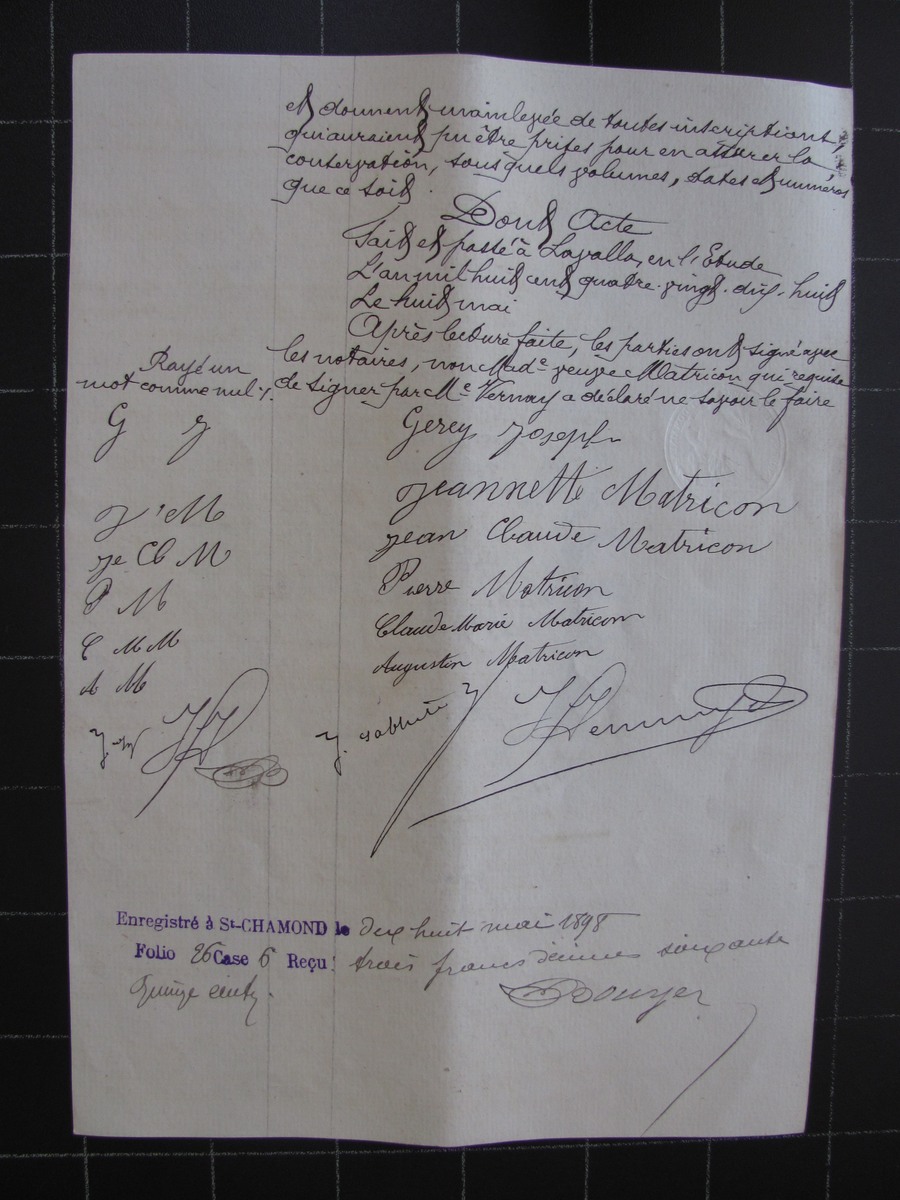 et donnent mainlevée de toutes inscriptions
qui auraient pu être prises pour en assurer la
conservation, sous quels volumes, dates et numéros
que ce soit.
Dont Acte
Fait et passé à Lavalla, en l'Etude
L'an mil huit cent quatre-vingt-dix-huit
Le huit mai
Après lecture faite, les parties ont signé avec
les notaires, non Madᵉ veuve Matricon qui requise
de signer par Mᵉ Vernay a déclaré ne savoir le faire
Rayé un
mot comme nul
G J
Gerey Joseph
J M
Jeannette Matricon
Je Cl M
Jean Claude Matricon
P M
Pierre Matricon
C M M
Claude Marie Matricon
A M
Augustin Matricon
Enregistré à St-CHAMOND le dix huit mai 1898
Folio 26 Case 6 Reçu: trois francs décimes soixante
Quinze cent.